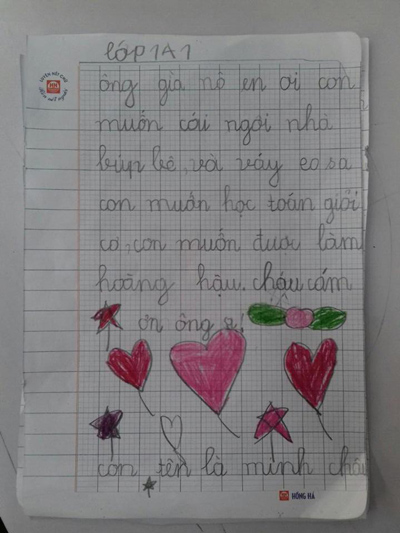 lớp 1A1
ông già nô en ơi con
muốn cái ngôi nhà
búp bê, và váy eo sa
con muốn học toán giỏi
cơ, con muốn được làm
hoàng hậu. cháu cám
ơn ông ạ!
con tên là minh châu
HỒNG HÀ